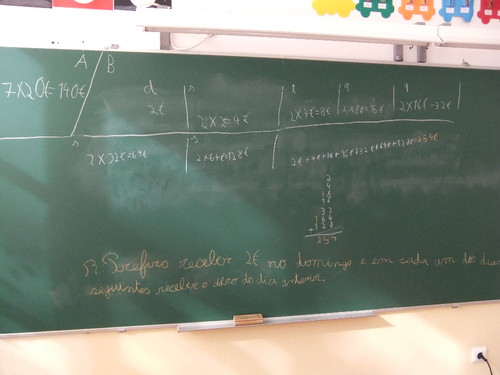 A B
7x20€=140€
d s t q q
2€ 2x2€=4€ 2x4€=8€ 2x8€=16€ 2x16€=32€
s s
2x32€=64€ 2x64€=128€ 2€+4€+8€+16€+32€+64€+128€=254€
2
4
8
16
32
64
+128
254
R: Prefiro receber 2€ no domingo e em cada um dos dias
seguintes receber o dobro do dia anterior.